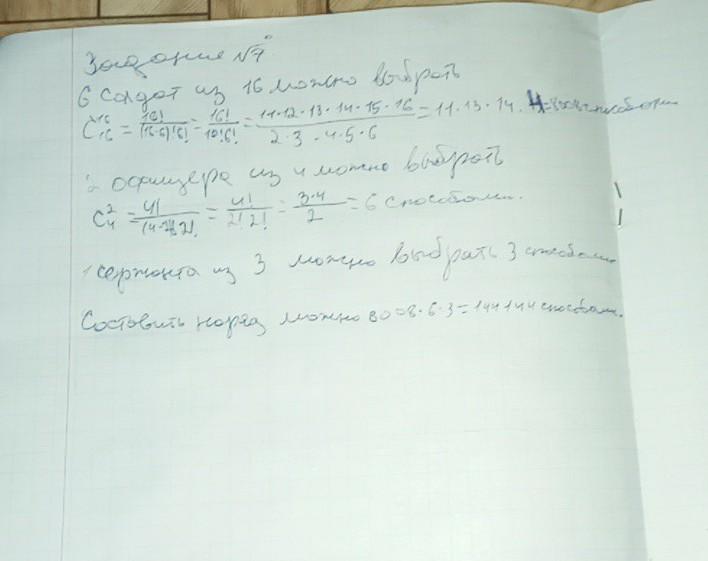 Задание №7
6 солдат из 16 можно выбрать
C₁₆¹⁶ = 16!/(16-6)!6! = 16!/10!6! = 11·12·13·14·15·16/2·3·4·5·6 = 11·13·14·4=8008 способами
2 офицера из 4 можно выбрать
C₄² = 4!/(4-2)!2! = 4!/2!2! = 3·4/2 = 6 способами.
1 сержанта из 3 можно выбрать 3 способами
Составить наряд можно 8008·6·3=144144 способами.